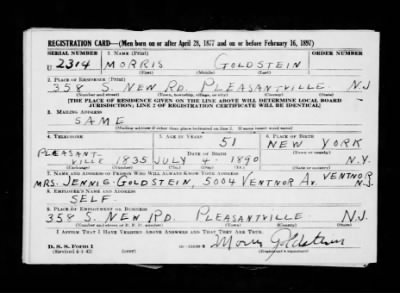 REGISTRATION CARD—(Men born on or after April 28, 1877 and on or before February 16, 1897)
SERIAL NUMBER 1. NAME (Print) ORDER NUMBER
U. 2314 MORRIS GOLDSTEIN
(First) (Middle) (Last)
2. PLACE OF RESIDENCE (Print)
358 S. NEW RD. PLEASANTVILLE N.J
(Number and street) (Town, township, village, or city) (County) (State)
[THE PLACE OF RESIDENCE GIVEN ON THE LINE ABOVE WILL DETERMINE LOCAL BOARD
JURISDICTION; LINE 2 OF REGISTRATION CERTIFICATE WILL BE IDENTICAL]
3. MAILING ADDRESS
SAME
[Mailing address if other than place indicated on line 2. If same insert word same]
4. TELEPHONE 5. AGE IN YEARS 6. PLACE OF BIRTH
51 NEW YORK
PLEASANT- DATE OF BIRTH (Town or county)
VILLE 1835 JULY 4 1890 N.Y.
(Exchange) (Number) (Mo.) (Day) (Yr.) (State or country)
7. NAME AND ADDRESS OF PERSON WHO WILL ALWAYS KNOW YOUR ADDRESS VENTNOR
MRS. JENNIE GOLDSTEIN, 5004 VENTNOR AV. N.J.
8. EMPLOYER'S NAME AND ADDRESS
SELF
9. PLACE OF EMPLOYMENT OR BUSINESS
358 S. NEW RD. PLEASANTVILLE N.J.
(Number and street or R. F. D. number) (Town) (County) (State)
I AFFIRM THAT I HAVE VERIFIED ABOVE ANSWERS AND THAT THEY ARE TRUE.
D. S. S. Form 1 Morris Goldstein
(Revised 4-1-42) (Registrant's signature)